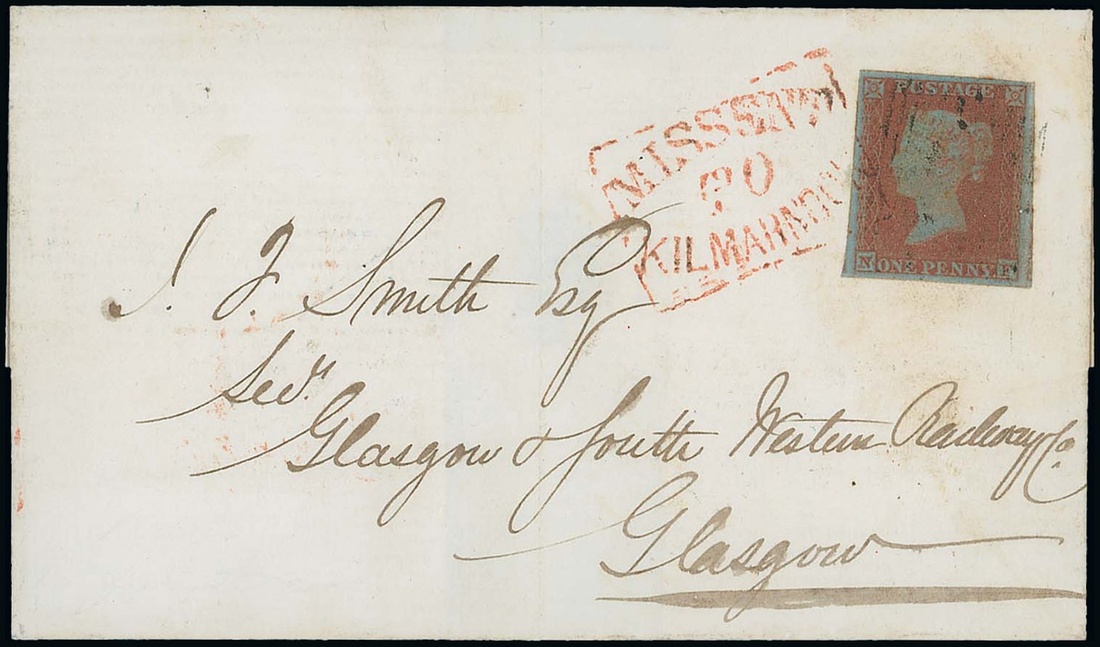 MISSSENT
TO
KILMARNOCK
POSTAGE
N ONE PENNY
J. F. Smith Esq
Secy.
Glasgow & South Western Railway Co.
Glasgow